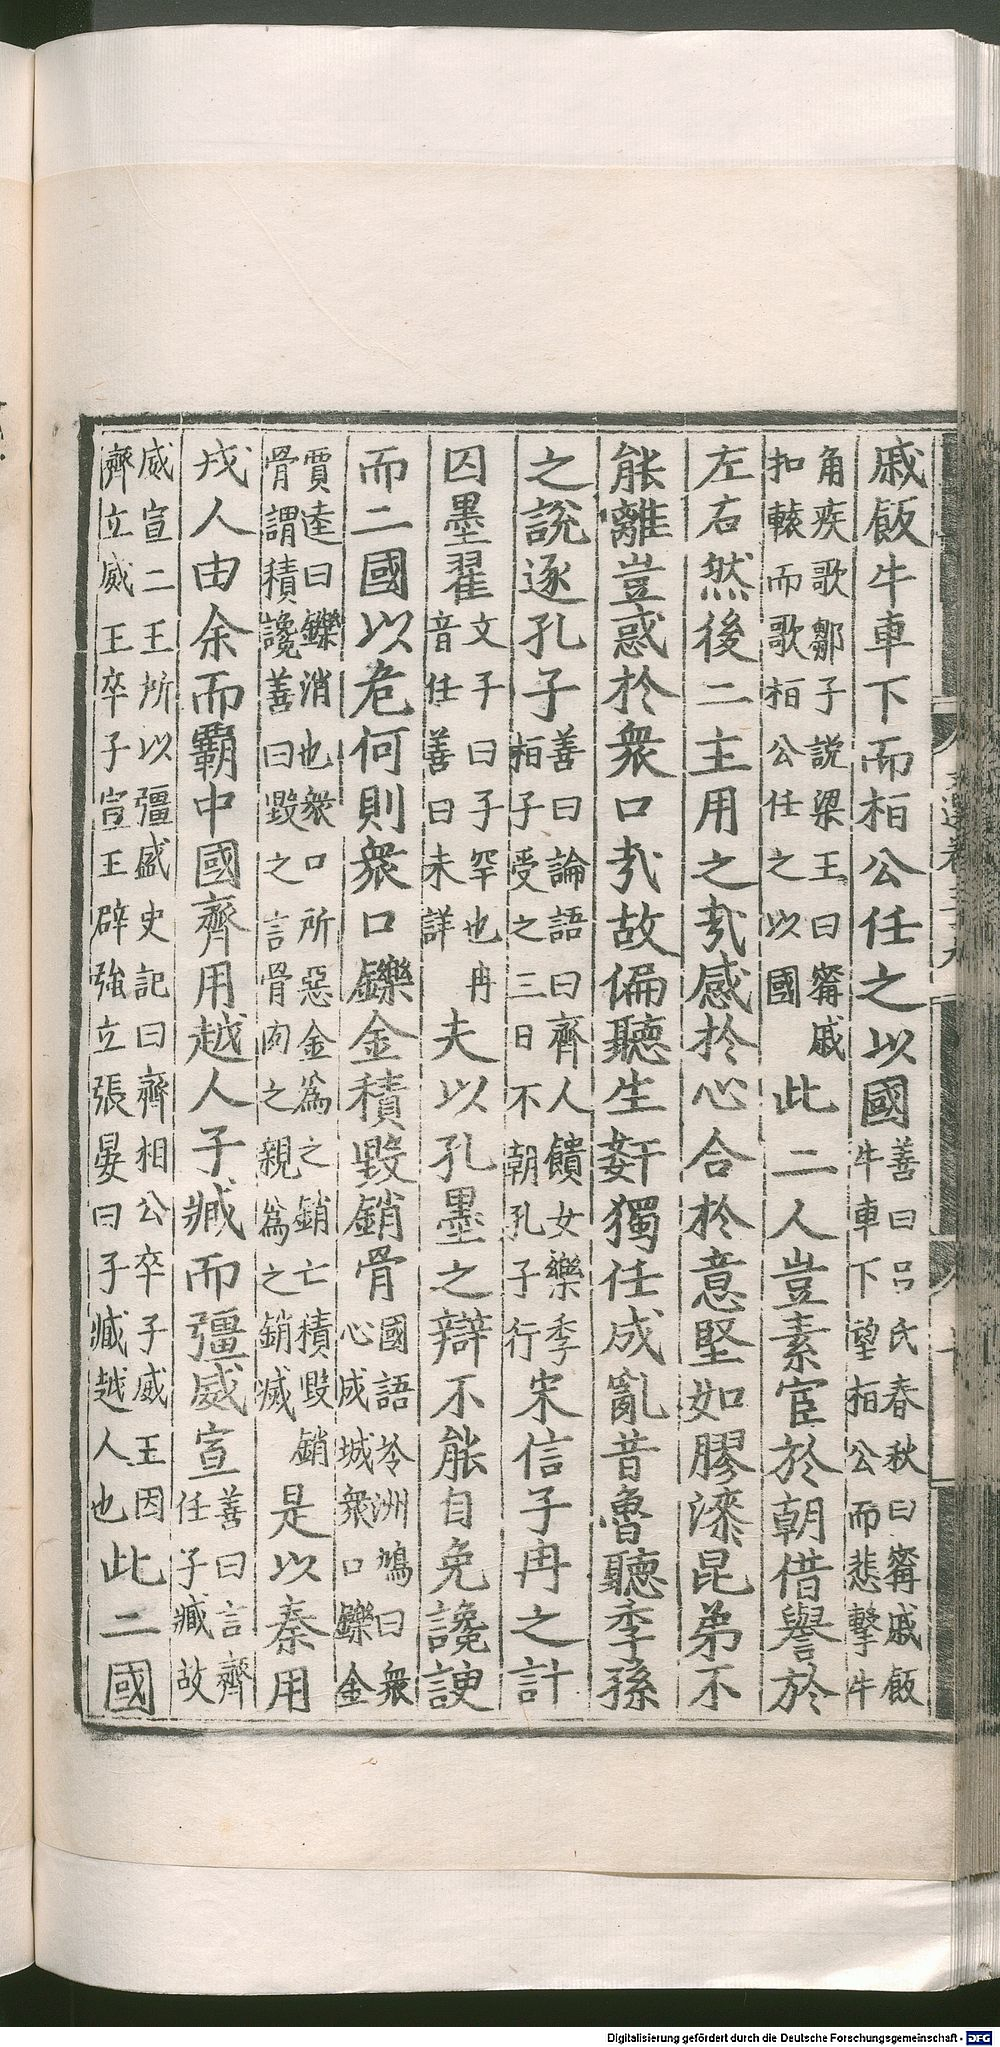 文選卷三十九
戚飯牛車下而桓公任之以國
善曰呂氏春秋曰甯戚飯
牛車下望桓公而悲擊牛
角疾歌鄒子說梁王曰甯戚
扣轅而歌桓公任之以國
此二人豈素宦於朝借譽於
左右然後二主用之㢤感於心合於意堅如膠漆昆弟不
能離豈惑於衆口㢤故偏聽生姧獨任成亂昔魯聽季孫
之說逐孔子
善曰論語曰齊人饋女樂季
桓子受之三日不朝孔子行
宋信子冉之計
囚墨翟
文子曰子罕也冉
音任善曰未詳
夫以孔墨之辯不能自免讒諛
而二國以危何則衆口鑠金積毀銷骨
國語泠洲鳩曰衆
心成城衆口鑠金
賈逵曰鑠消也衆口所惡金爲之銷亡積毀銷
骨謂積讒善曰毀之言骨肉之親爲之銷滅
是以秦用
戎人由余而霸中國齊用越人子臧而彊威宣
善曰言齊
任子臧故
威宣二王所以彊盛史記曰齊桓公卒子威王因
齊立威王卒子宣王辟強立張晏曰子臧越人也
此二國
Digitalisierung gefördert durch die Deutsche Forschungsgemeinschaft - DFG